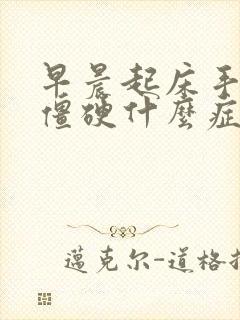 早晨起床手
僵硬什麼症
邁克尔-道格拉